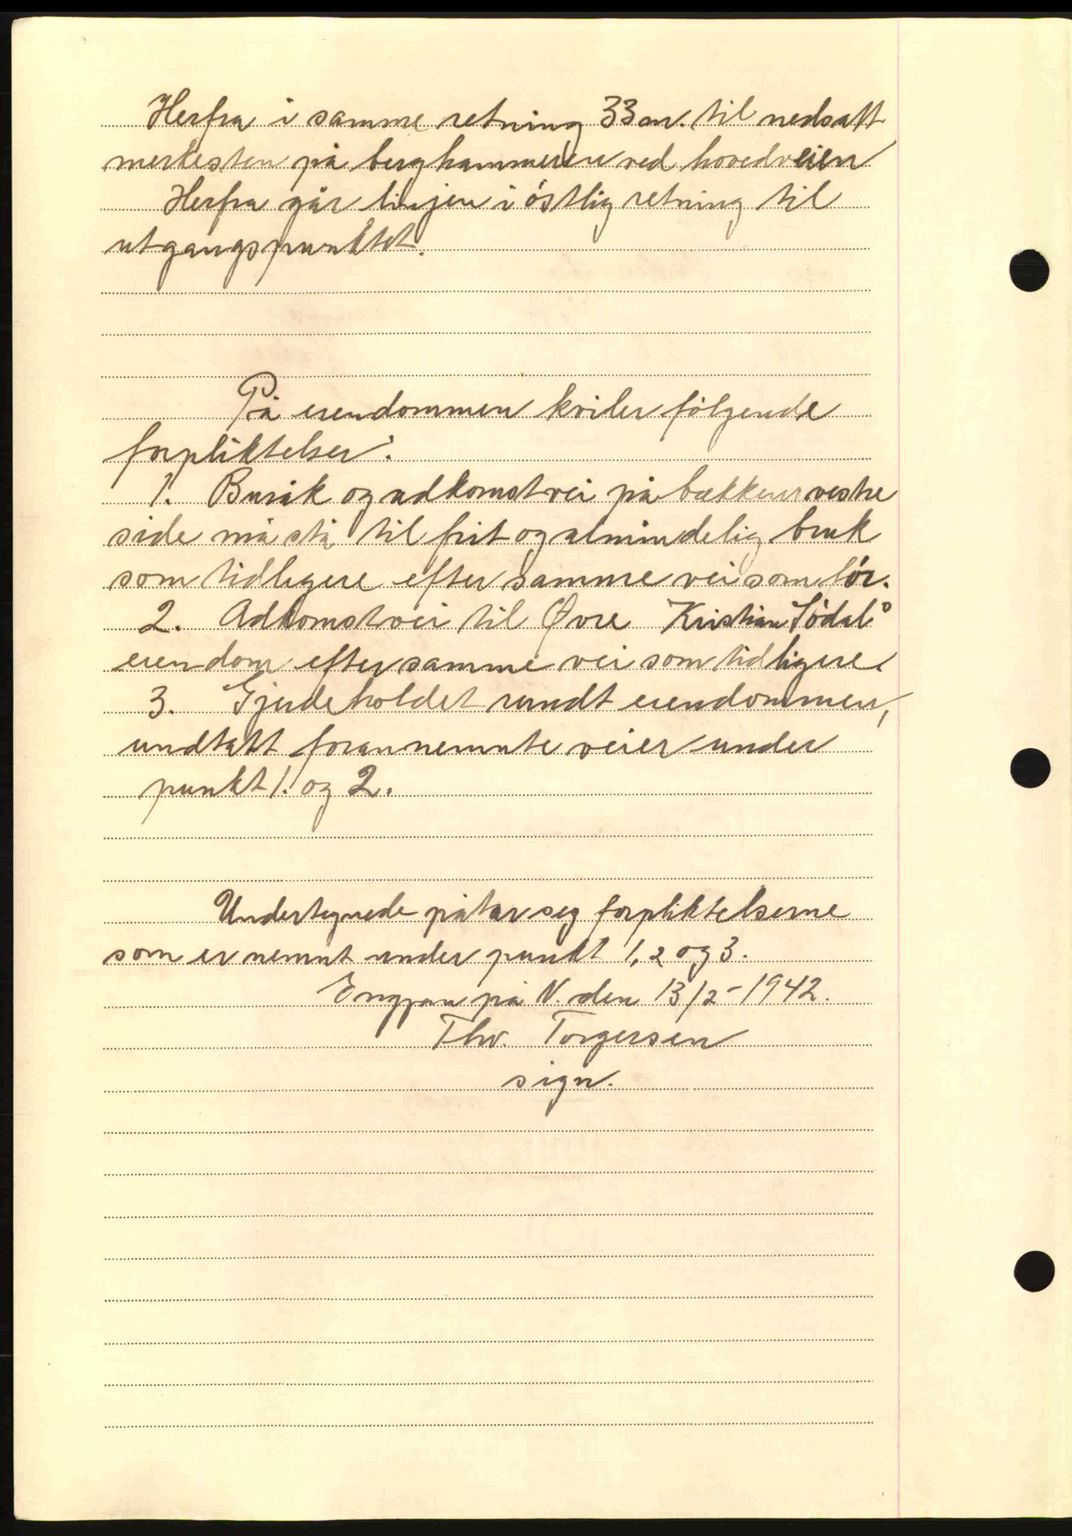 Herfra i samme retning 33 m. til nedsatt
merkesten på berghammeren ved hovedveien
Herfra går linjen i östlig retning til
utgangspunktet.
På eiendommen kviler følgende
forpliktelser:
1. Buråk og adkomstvei på bækkens vestre
side må stå til frit og almindelig bruk
som tidligere efter samme vei som før.
2. Adkomstvei til Øvre Kristian Södals
eiendom efter samme vei som tidligere.
3. Gjerdeholdet rundt eiendommen,
undtatt forannemnte veier under
punkt 1. og 2.
Undertegnede påtar seg forpliktelserne
som er nemnt under punkt 1, 2 og 3.
på N. den 13/2-1942.
Thv. Torgersen
sign.